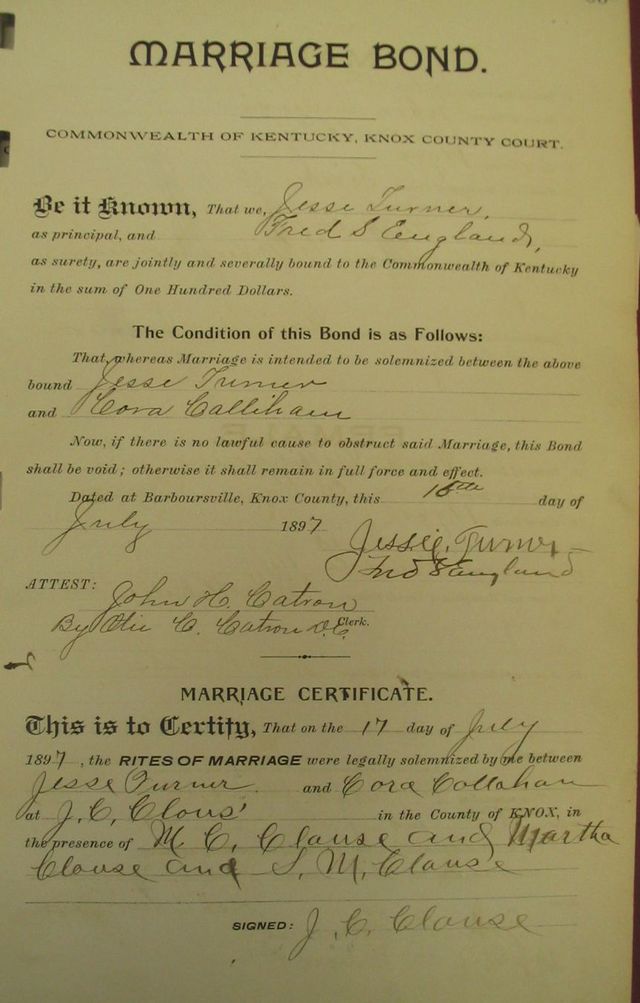 MARRIAGE BOND.
COMMONWEALTH OF KENTUCKY, KNOX COUNTY COURT.
Be it Known, That we, Jesse Turner,
as principal, and Fred S England,
as surety, are jointly and severally bound to the Commonwealth of Kentucky
in the sum of One Hundred Dollars.
The Condition of this Bond is as Follows:
That, whereas Marriage is intended to be solemnized between the above
bound Jesse Turner
and Cora Calliham
Now, if there is no lawful cause to obstruct said Marriage, this Bond
shall be void; otherwise it shall remain in full force and effect.
Dated at Barboursville, Knox County, this day of
July 1897
Jessie Turner
Fred S England
ATTEST: John H. Catron
Clerk.
By Otis C. Catron D.C.
MARRIAGE CERTIFICATE.
This is to Certify, That on the 17 day of July
1897, the RITES OF MARRIAGE were legally solemnized by me between
Jesse Turner and Cora Collahan
at J. C. Clous' in the County of KNOX, in
the presence of M. C. Clause and Martha
Clouse and S. M. Clause
SIGNED: J. C. Clouse